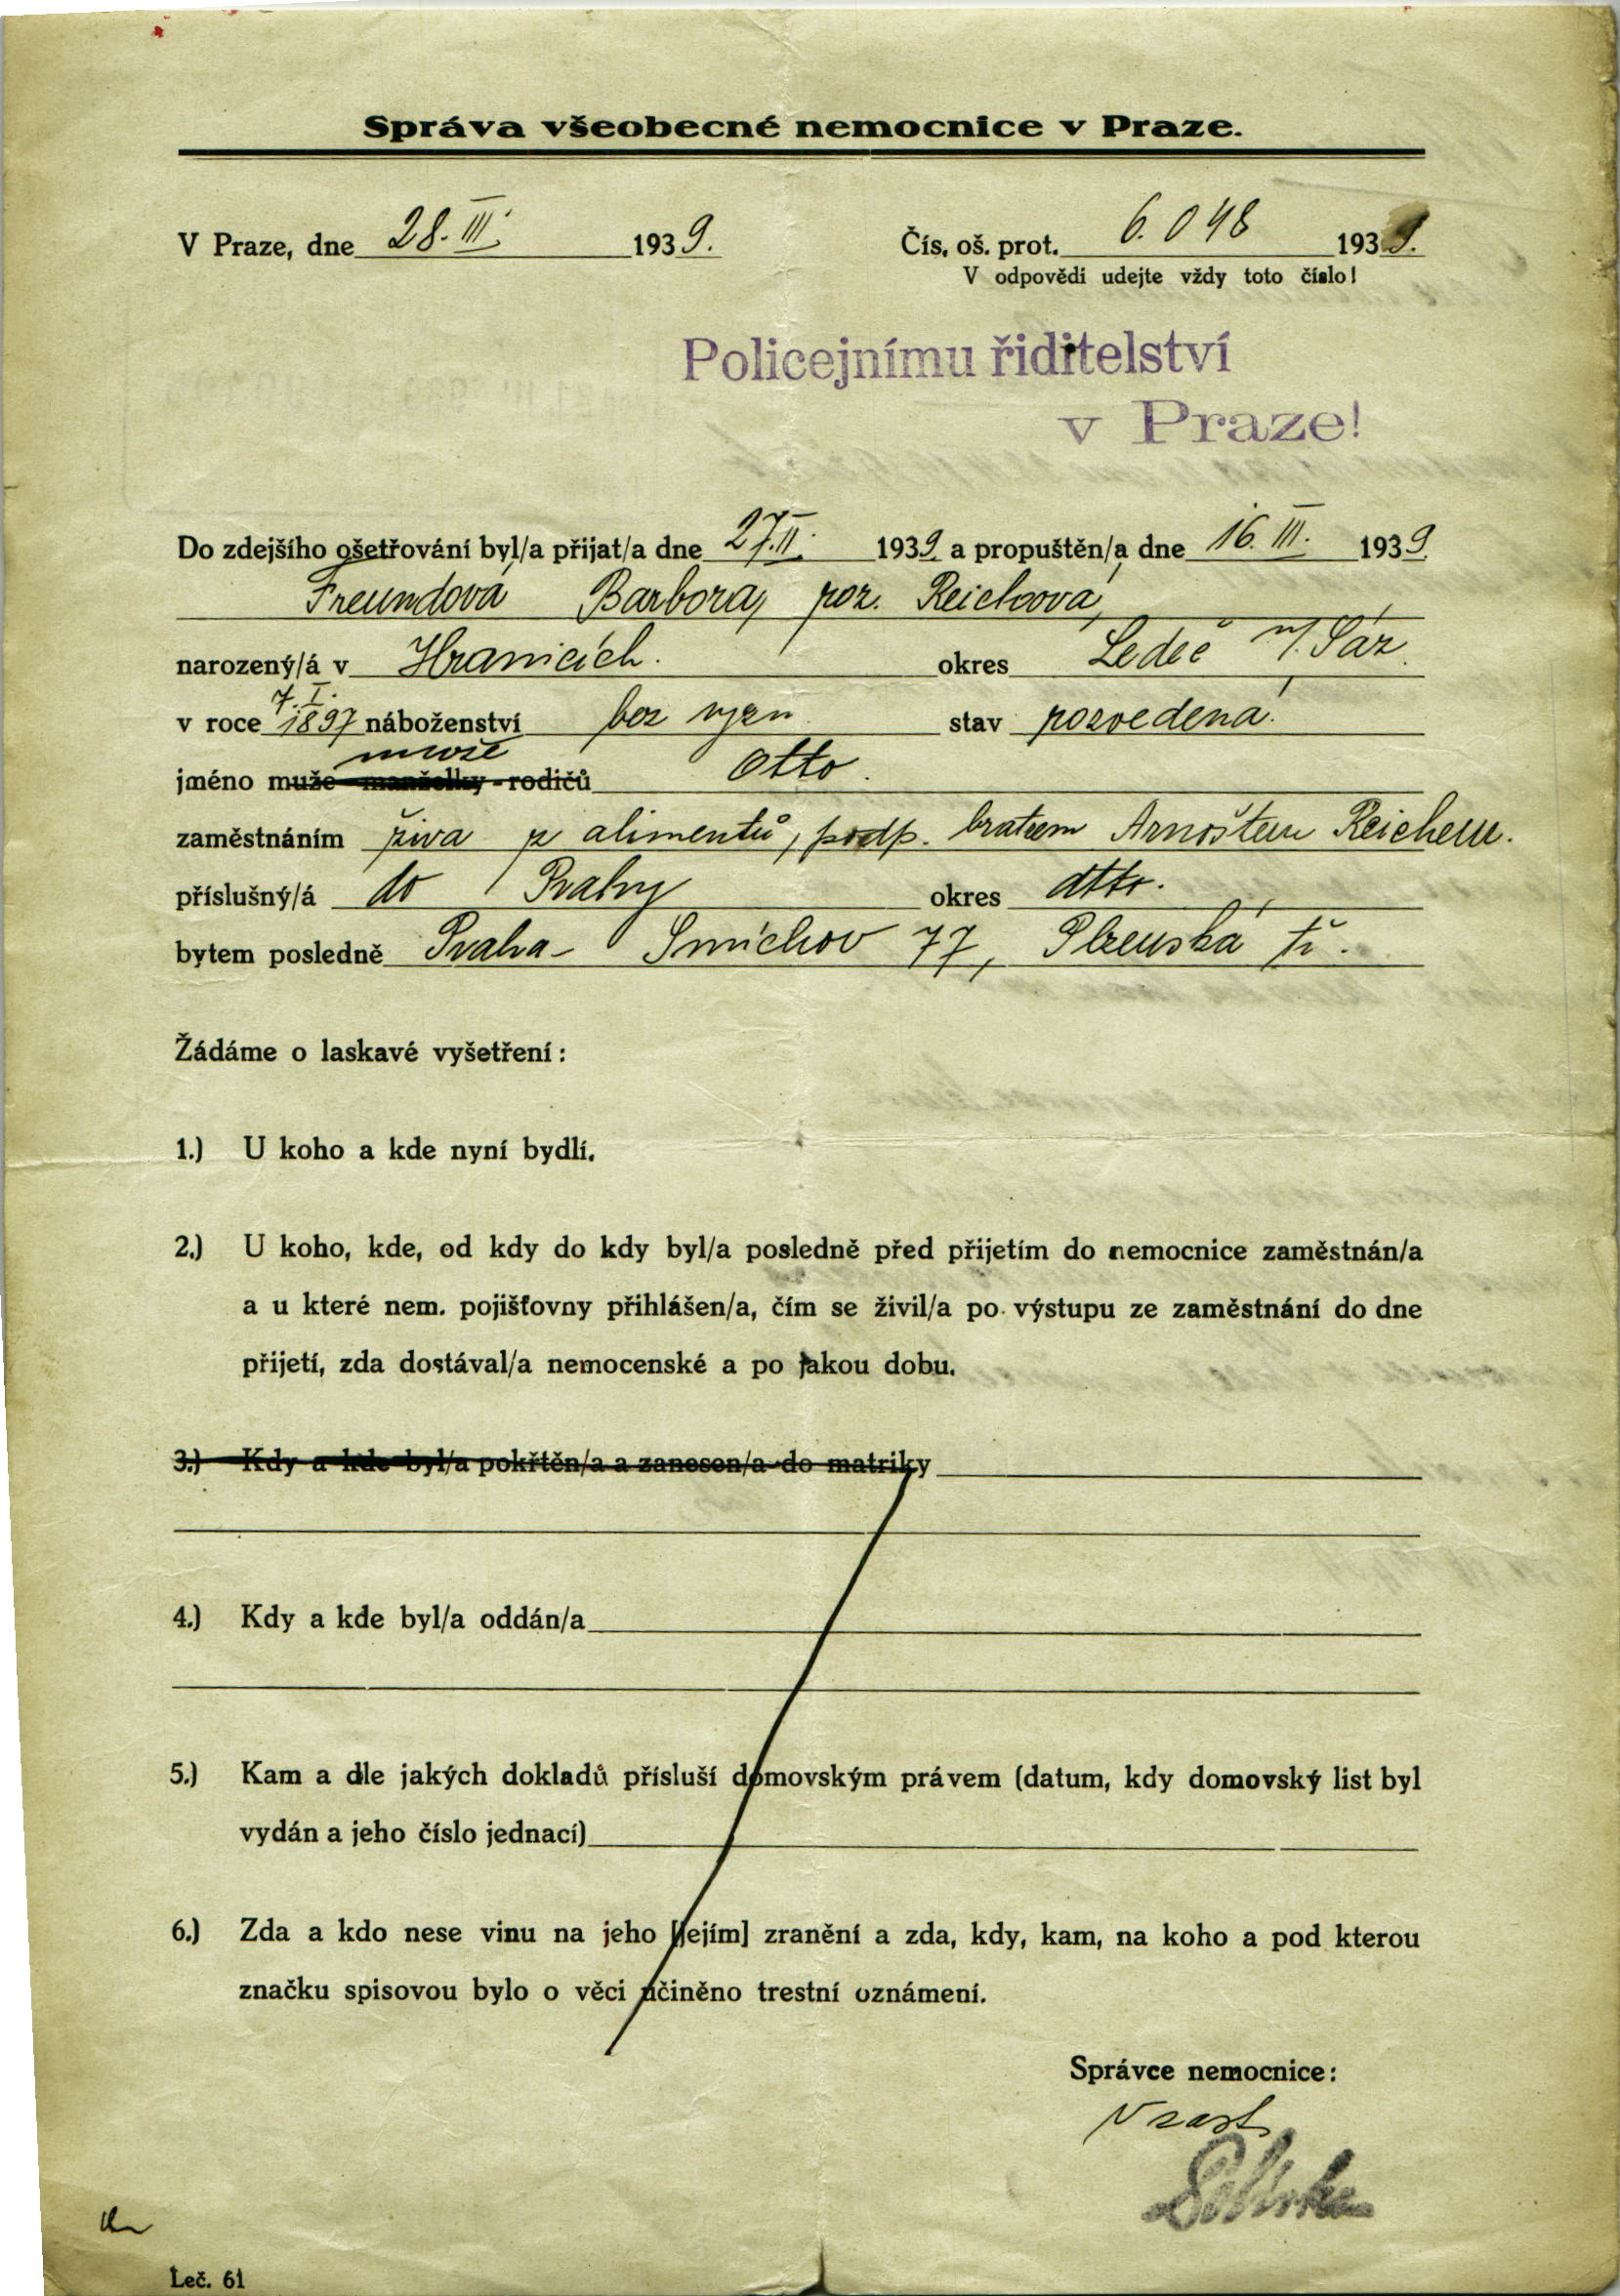 Správa všeobecné nemocnice v Praze.
V Praze, dne 28. III. 1939.
Čís. oš. prot. 6.048 1939.
V odpovědi udejte vždy toto číslo!
Policejnímu řiditelství
v Praze!
Do zdejšího ošetřování byl/a přijat/a dne 27.II. 1939. a propuštěn/a dne 16. III. 1939.
Freundová Barbora, roz. Reichová,
narozený/á v Hranicích. okres Ledeč n/Sáz.
7. I.
v roce 1897 náboženství bez vyzn. stav rozvedená.
muže
jméno muže - manželky - rodičů Otto.
zaměstnáním živa z alimentů, podp. bratrem Arnoštem Reichem.
příslušný/á do Prahy okres dtto.
bytem posledně Praha - Smíchov 77, Plzeňská tř.
Žádáme o laskavé vyšetření:
1.) U koho a kde nyní bydlí.
2.) U koho, kde, od kdy do kdy byl/a posledně před přijetím do nemocnice zaměstnán/a
a u které nem. pojišťovny přihlášen/a, čím se živil/a po výstupu ze zaměstnání do dne
přijetí, zda dostával/a nemocenské a po jakou dobu.
3.) Kdy a kde byl/a pokřtěn/a a zanesen/a do matriky
4.) Kdy a kde byl/a oddán/a
5.) Kam a dle jakých dokladů přísluší domovským právem (datum, kdy domovský list byl
vydán a jeho číslo jednací)
6.) Zda a kdo nese vinu na jeho [jejím] zranění a zda, kdy, kam, na koho a pod kterou
značku spisovou bylo o věci učiněno trestní oznámení.
Správce nemocnice:
V zast.
Leč. 61